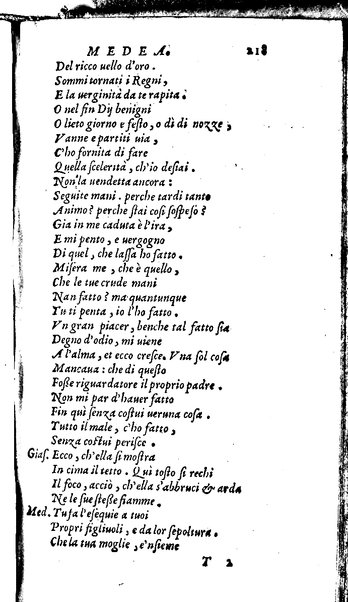 MEDEA. 218
Del ricco uello d'oro.
Sommi tornati i Regni,
E la uerginità da te rapita.
O nel fin Dij benigni
O lieto giorno e festo, o dì di nozze,
Vanne e partiti uia,
C'ho fornita di fare
Quella scelerità, ch'io desiai.
Non la uendetta ancora:
Seguite mani. perche tardi tanto
Animo? perche stai così sospeso?
Gia in me caduta è l'ira,
E mi pento, e uergogno
Di quel, che lassa ho fatto.
Misera me, che è quello,
Che le tue crude mani
Nan fatto? ma quantunque
Tu ti penta, io l'ho fatto.
Vn gran piacer, benche tal fatto sia
Degno d'odio, mi uiene
A l'alma, et ecco cresce. Vna sol cosa
Mancaua: che di questo
Fosse riguardatore il proprio padre.
Non mi par d'hauer fatto
Fin quì senza costui ueruna cosa.
Tutto il male, c'ho fatto,
Senza costui perisce.
Gias. Ecco, ch'ella si mostra
In cima il tetto. Quì tosto si rechi
Il foco, acciò, ch'ella s'abbruci & arda
Ne le sue stesse fiamme.
Med. Tu fa l'esequie a tuoi
Propri figliuoli, e da lor sepoltura.
Che la tua moglie, e'nsieme
T 2